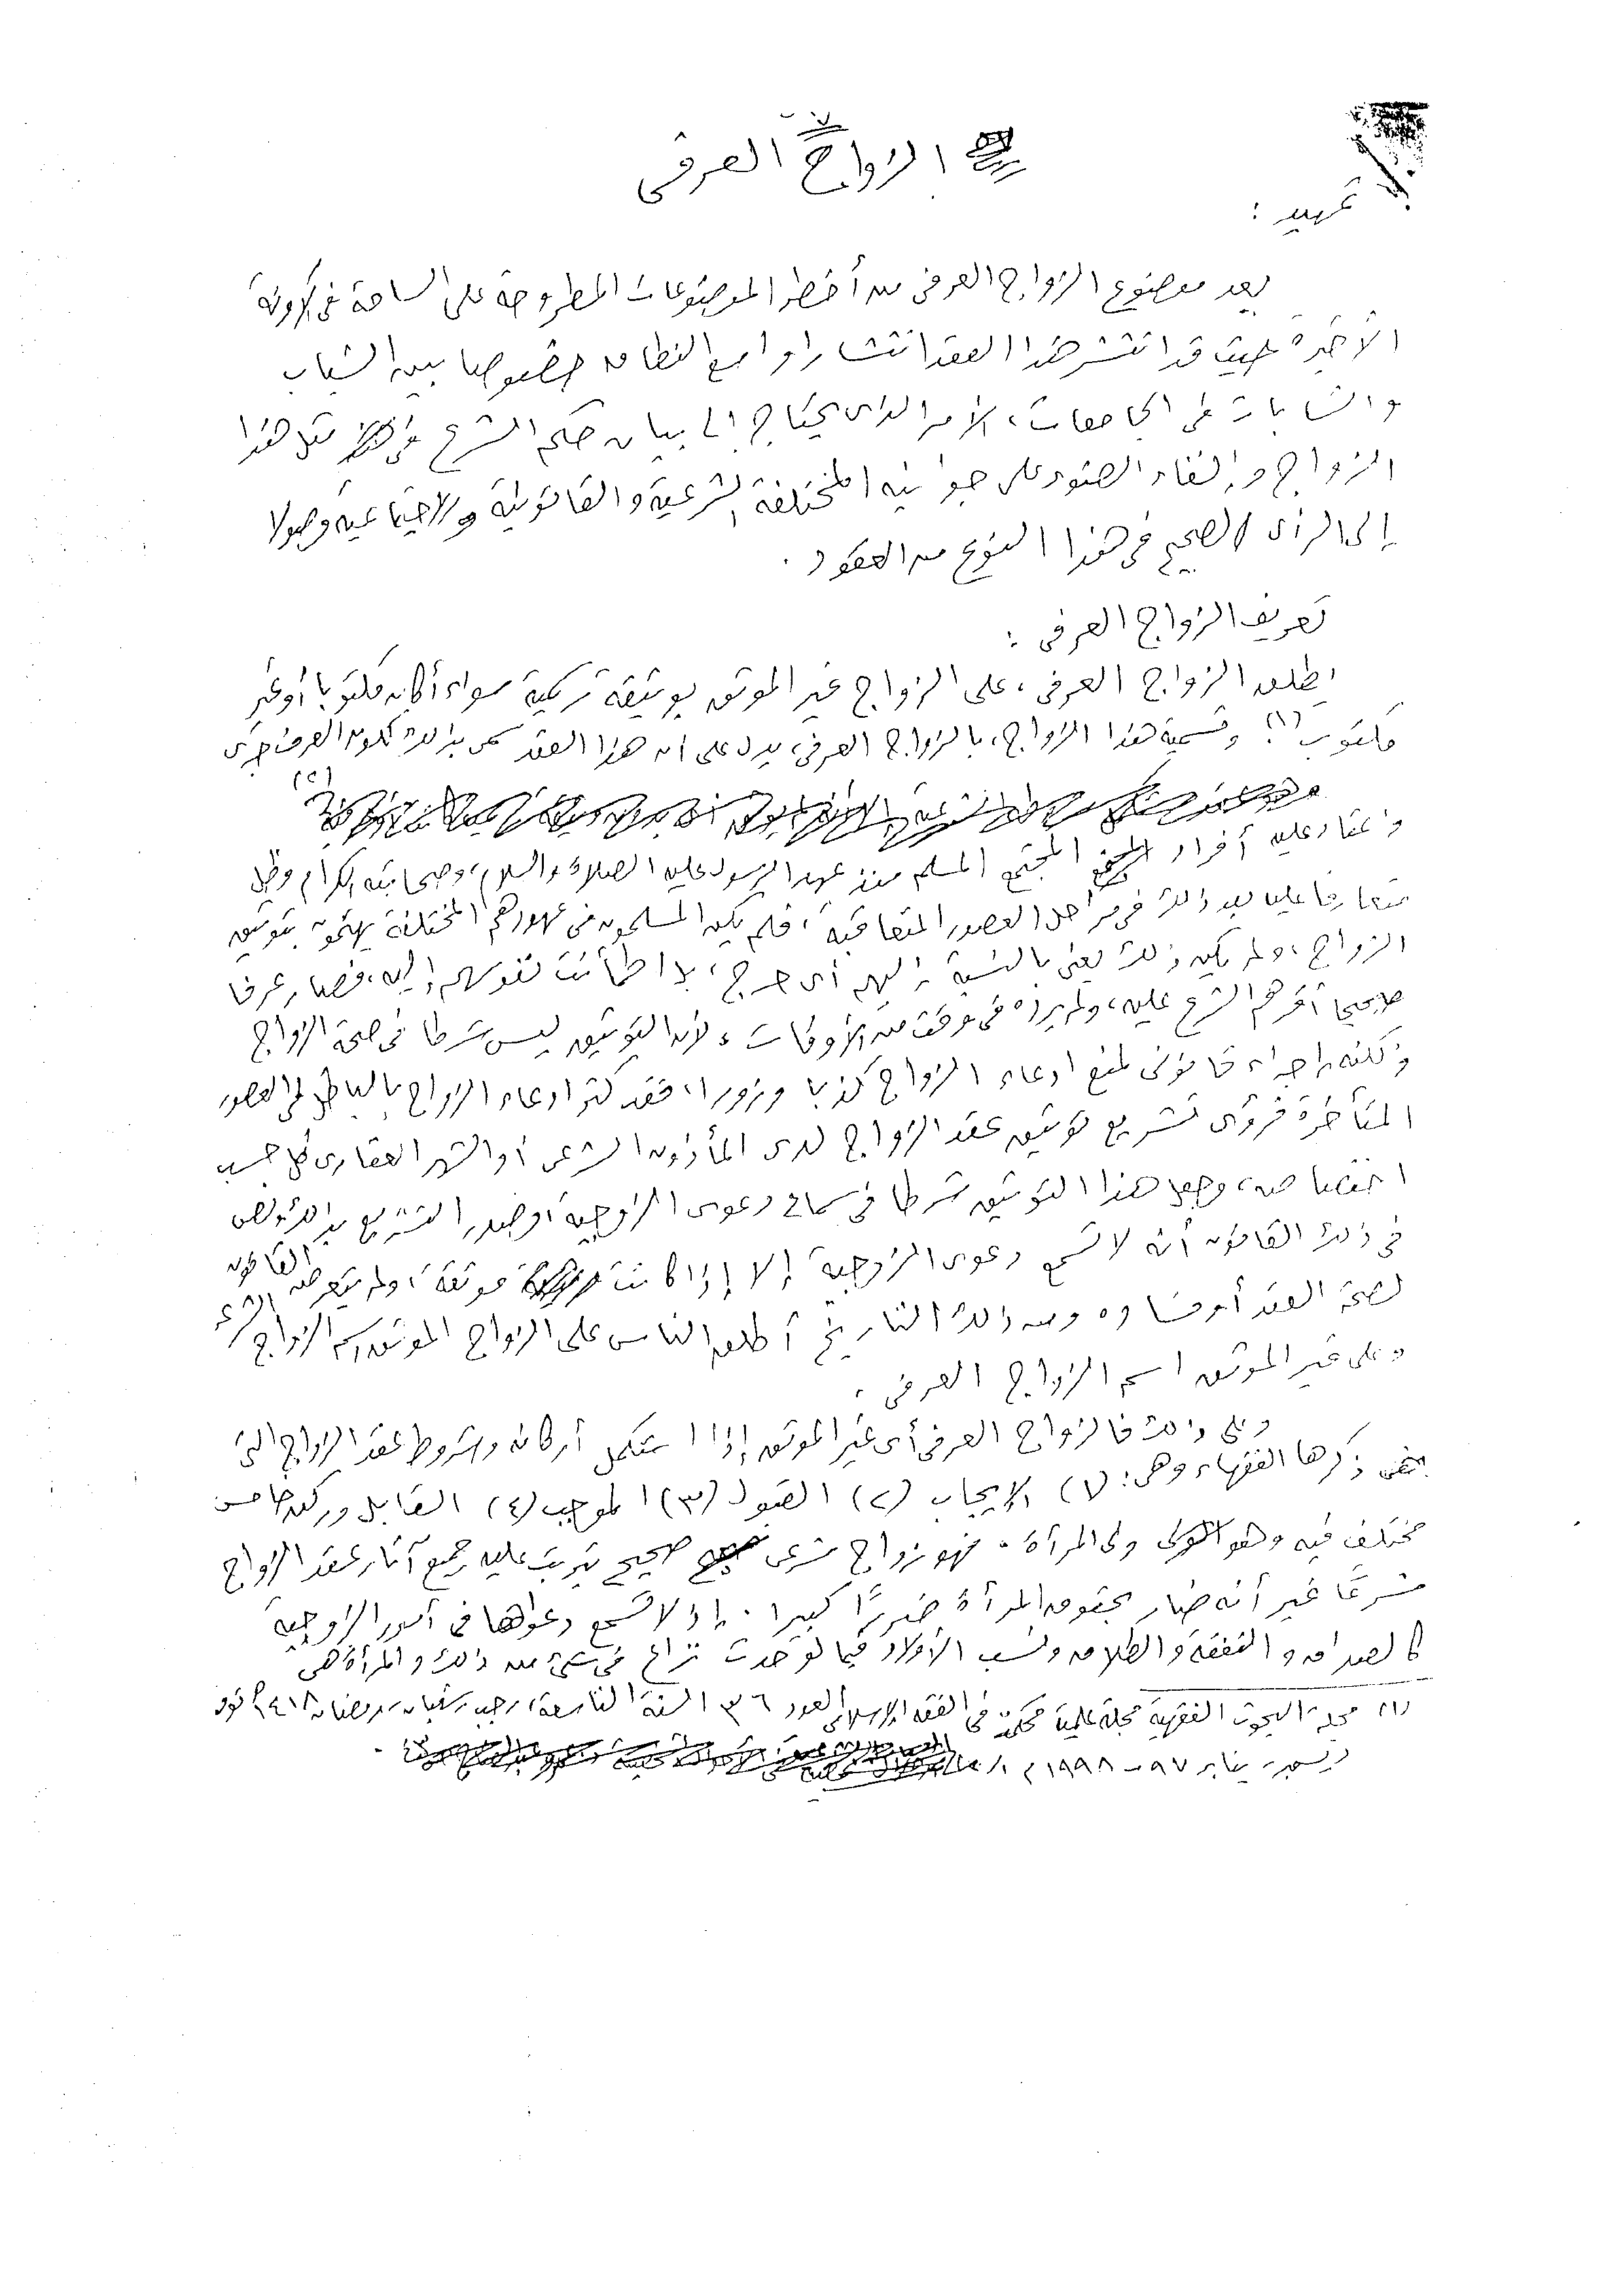 الزواج العرفى
تمهيد :
يعد موضوع الزواج العرفى من أخطر الموضوعات المطروحة على الساحة فى الآونة
الأخيرة حيث قد انتشر هذا العقد انتشارا واسع النطاق خصوصا بين الشباب
والشابات فى الجامعات، الأمر الذى يحتاج إلى بيان حكم الشرع فى مثل هذا
الزواج وإلقاء الضوء على جوانبه المختلفة الشرعية والقانونية والاجتماعية وصولا
إلى الرأى الصحيح فى هذا النوع من العقود .
تعريف الزواج العرفى :
يطلق الزواج العرفى، على الزواج غير الموثق بوثيقة رسمية سواء أكان مكتوبا أو غير
مكتوب (١) وتسمية هذا الزواج، بالزواج العرفى، يدل على أن هذا العقد سمى بذلك لكون العرف جرى
(٢)
واعتاد عليه أفراد المجتمع المسلم منذ عهد الرسول عليه الصلاة والسلام، وصحابته الكرام وظل
متعارفا عليه بعد ذلك فى مراحل العصور المتعاقبة، فلم يكن المسلمون فى عهودهم المختلفة يهتمون بتوثيق
الزواج، ولم يكن ذلك يعنى بالنسبة إليهم أى حرج، بل اطمأنت نفوسهم إليه، فصار عرفا
صحيحا أقرهم الشرع عليه، ولم يرده فى وقت من الأوقات، لأن التوثيق ليس شرطا فى صحة الزواج
ولكنه إجراء قانونى لمنع ادعاء الزواج كذبا وزورا، فقد كثر ادعاء الزواج بالباطل فى العصور
المتأخرة فروئى تشريع توثيق عقد الزواج لدى المأذون الشرعى أو الشهر العقارى كل حسب
اختصاصه، وجعل هذا التوثيق شرطا فى سماع دعوى الزوجية، وصدر التشريع بذلك ونص
فى ذلك القانون أنه لا تسمع دعوى الزوجية إلا إذا كانت موثقة، ولم يتعرض القانون
لصحة العقد أو فساده ومن ذلك التاريخ أطلق الناس على الزواج الموثق اسم الزواج الشرعى
وعلى غير الموثق اسم الزواج العرفى .
وعلى ذلك فالزواج العرفى أى غير الموثق إذا استكمل أركانه وشروط عقد الزواج التى
ذكرها الفقهاء وهى : (١) الإيجاب (٢) القبول (٣) الموجب (٤) القابل وركن خامس
مختلف فيه وهو ولى المرأة . فهو زواج شرعى صحيح يترتب عليه جميع آثار عقد الزواج
شرعًا غير أنه ضار بحقوق المرأة ضررًا كبيرا . إذ لا تسمع دعواها فى أمور الزوجية
كالصداق والنفقة والطلاق ونسب الأولاد فيما لو حدث نزاع فى شئ من ذلك والمرأة هى
(١) مجلة البحوث الفقهية مجلة علمية محكمة فى الفقه الإسلامى العدد ٣٦ السنة التاسعة، رجب، شعبان، رمضان ١٤١٨ هـ نوفمبر
ديسمبر، يناير ٩٧ - ١٩٩٨ م